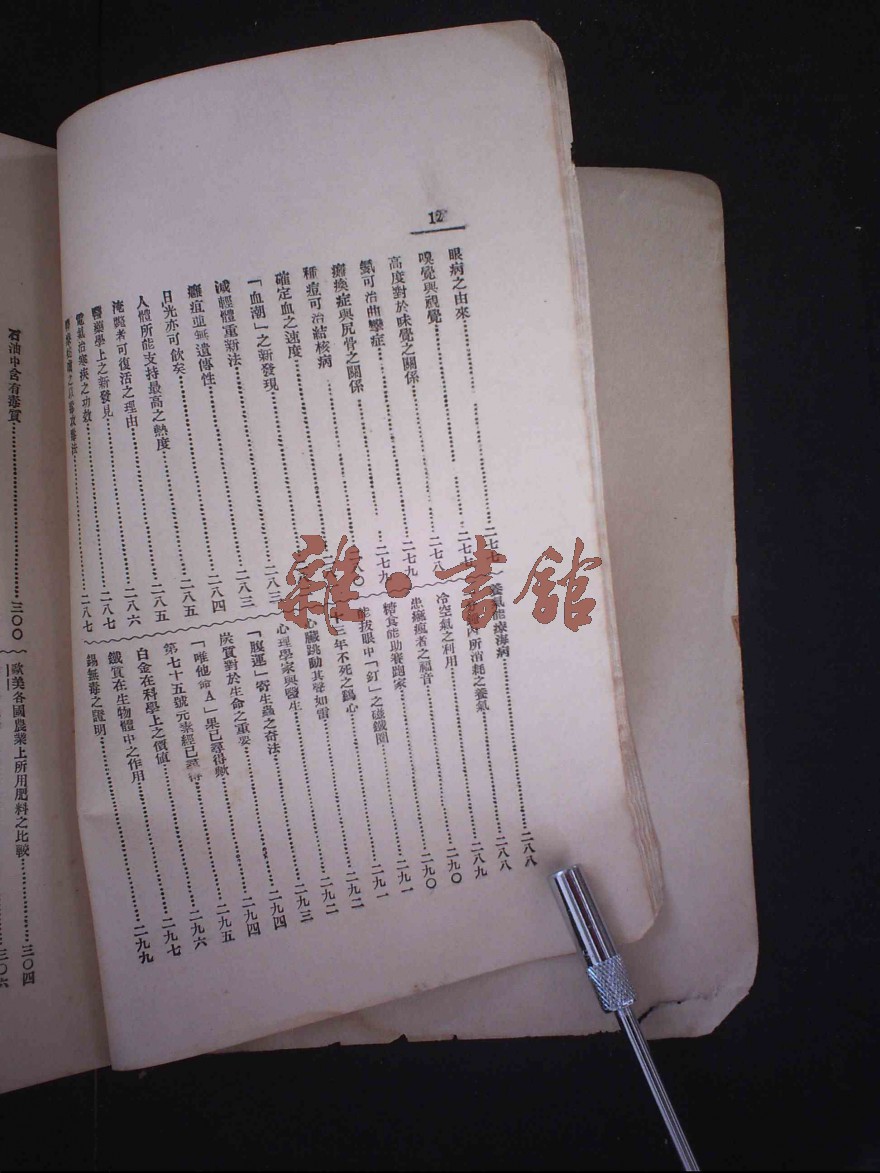 12
眼病之由來……二七七
嗅覺與視覺……二七七
高度對於味覺之關係……二七八
氨可治曲攣症……二七九
癱瘓症與尻骨之關係……二七九
種痘可治結核病……二八〇
確定血之速度
「血潮」之新發現……二八三
減輕體重新法……二八三
癰疽並無遺傳性……二八四
日光亦可飲矣……二八五
人體所能支持最高之熱度……二八五
淹斃者可復活之理由……二八六
醫藥學上之新發見……二八七
電氣治寒疾之功效……二八七
養氣能療海病……二八八
內所消耗之養氣……二八八
冷空氣之利用……二八九
患瘋癱者之福音……二九〇
糖食能助賽跑家……二九〇
能拔眼中「釘」之磁鐵圈……二九一
十三年不死之鷄心……二九一
心臟跳動其聲如雷……二九二
心理學家與醫生……二九二
「腹運」寄生蟲之奇法……二九三
炭質對於生命之重要……二九四
「唯他命A」果已尋得歟……二九四
第七十五號元素經已尋得……二九五
白金在科學上之價値……二九六
鐵質在生物體中之作用……二九七
錫無毒之證明……二九九
石油中含有毒質……三〇〇
歐美各國農業上所用肥料之比較……三〇四
三〇六
雜·書館